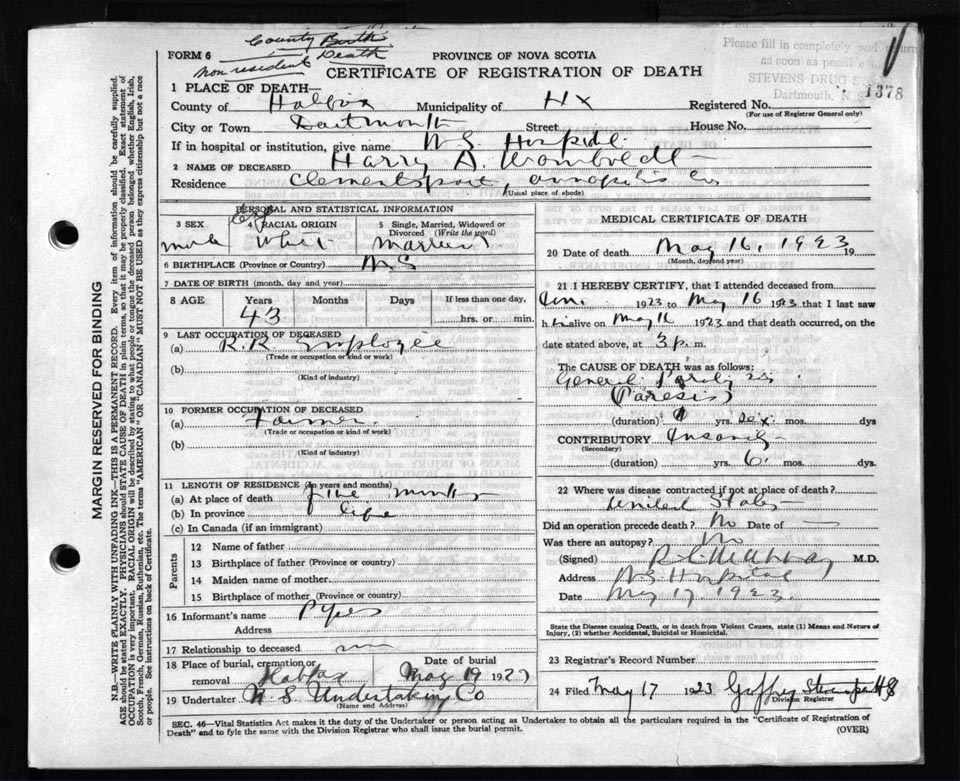 County Birth
Death
non resident
FORM 6
PROVINCE OF NOVA SCOTIA
CERTIFICATE OF REGISTRATION OF DEATH
Please fill in completely and return
as soon as possible
STEVENS DRUG
Dartmouth, N.S.
1378
1 PLACE OF DEATH—
County of Halifax Municipality of Hx Registered No.
(For use of Registrar General only)
City or Town Dartmouth Street House No.
If in hospital or institution, give name N S Hospital
2 NAME OF DECEASED Harry D.
Residence Clementsport, Annapolis Co.
(Usual place of abode)
PERSONAL AND STATISTICAL INFORMATION
3 SEX 4 RACIAL ORIGIN 5 Single, Married, Widowed or Divorced (Write the word)
male White married
6 BIRTHPLACE (Province or Country) N S
7 DATE OF BIRTH (month, day and year)
8 AGE Years Months Days If less than one day,
43 hrs. or min.
9 LAST OCCUPATION OF DECEASED
(a) R.R. Employee
(Trade or occupation or kind or work)
(b)
(Kind of industry)
10 FORMER OCCUPATION OF DECEASED
(a) Farmer
(Trade or occupation or kind of work)
(b)
(Kind of industry)
11 LENGTH OF RESIDENCE (in years and months)
(a) At place of death five months
(b) In province life
(c) In Canada (if an immigrant)
Parents
12 Name of father
13 Birthplace of father (Province or country)
14 Maiden name of mother
15 Birthplace of mother (Province or country)
16 Informant's name
Address
17 Relationship to deceased
18 Place of burial, cremation or removal Halifax Date of burial May 19 192
19 Undertaker N. S. Undertaking Co
(Name and Address)
MEDICAL CERTIFICATE OF DEATH
20 Date of death May 16, 1923 19
(Month, day and year)
21 I HEREBY CERTIFY, that I attended deceased from
1923 to May 16 1923 that I last saw
him alive on May 16 1923 and that death occurred, on
date stated above, at 3 p. m.
The CAUSE OF DEATH was as follows:
General Paralysis
(Paresis)
(duration) yrs. six mos. dys
CONTRIBUTORY Insanity
(Secondary)
(duration) yrs. 6 mos. dys.
22 Where was disease contracted if not at place of death?
United States
Did an operation precede death? No Date of —
Was there an autopsy? No
(Signed) M.D.
Address N.S. Hospital
Date May 17, 1923.
State the Disease causing Death, or in death from Violent Causes, state (1) Means and Nature of
Injury, (2) whether Accidental, Suicidal or Homicidal.
23 Registrar's Record Number
24 Filed May 17 1923
Division Registrar
SEC. 46—Vital Statistics Act makes it the duty of the Undertaker or person acting as Undertaker to obtain all the particulars required in the "Certificate of Registration of
Death" and to fyle the same with the Division Registrar who shall issue the burial permit.
(OVER)
MARGIN RESERVED FOR BINDING
N.B.—WRITE PLAINLY WITH UNFADING INK—THIS IS A PERMANENT RECORD. Every item of information should be carefully supplied.
AGE should be stated EXACTLY. PHYSICIANS should STATE CAUSE OF DEATH in plain terms, so that it may be properly classified. Exact statement of
OCCUPATION is very important. RACIAL ORIGIN will be described by stating to what people or tongue the deceased person belonged whether English, Irish,
Scotch, French, German, Russian, Ruthenian, etc. The terms "AMERICAN" OR "CANADIAN" MUST NOT BE USED as they express citizenship but not a race
or people. See instructions on back of Certificate.